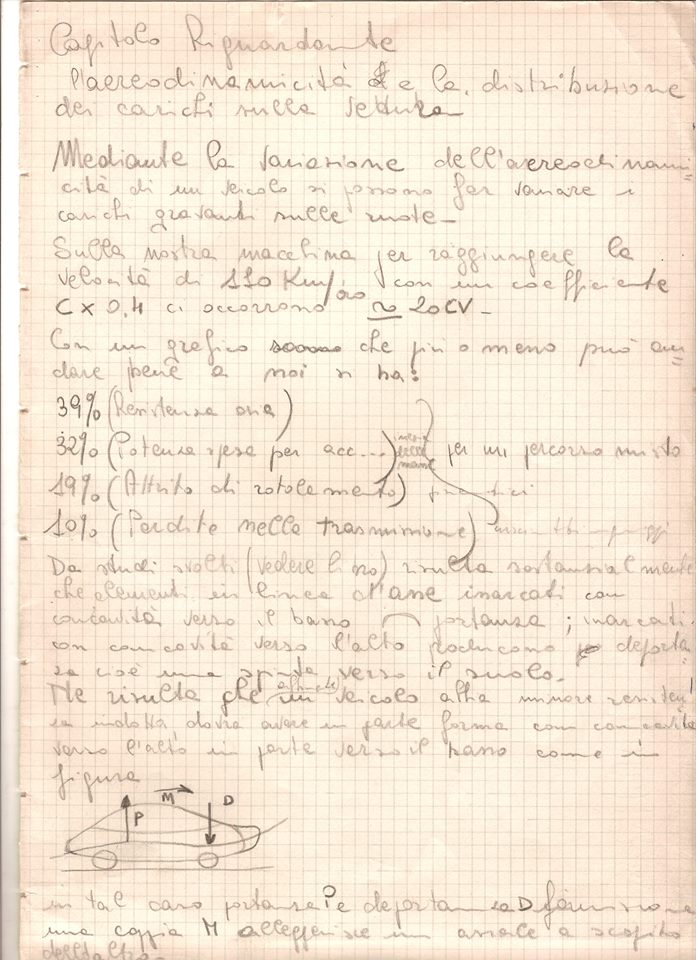 Capitolo Riguardante
l'aereodinamicità e la distribuzione
dei carichi sulla vettura
Mediante la variazione dell'aereodinami=
cità di un veicolo si possono far variare i
carichi gravanti sulle ruote-
Sulla nostra macchina per raggiungere la
velocità di 110 Km/ora con un coefficiente
CX 0,4 ci occorrono ~ 20CV-
Con un grafico che più o meno può an=
dare bene a noi si ha:
39% (Resistenza aria)
32% (Potenza spesa per acc...) per un percorso misto
19% (Attrito di rotolamento)
10% (Perdite nella trasmissione)
Da studi svolti (vedere libro) risulta sostanzialmente
che elementi in linea d'asse inarcati con
concavità verso il basso portanza; inarcati
con concavità verso l'alto producono deporta
za cioè una spinta verso il suolo.
Ne risulta che affinché un veicolo abbia minore resisten
za indotta dovrà avere in parte forma con concavità
verso l'alto in parte verso il basso come in
figura
P M D
in tal caso portanza P e deportanza D forniscono
una coppia M alleggerisce un assale a scapito
dell'altro-